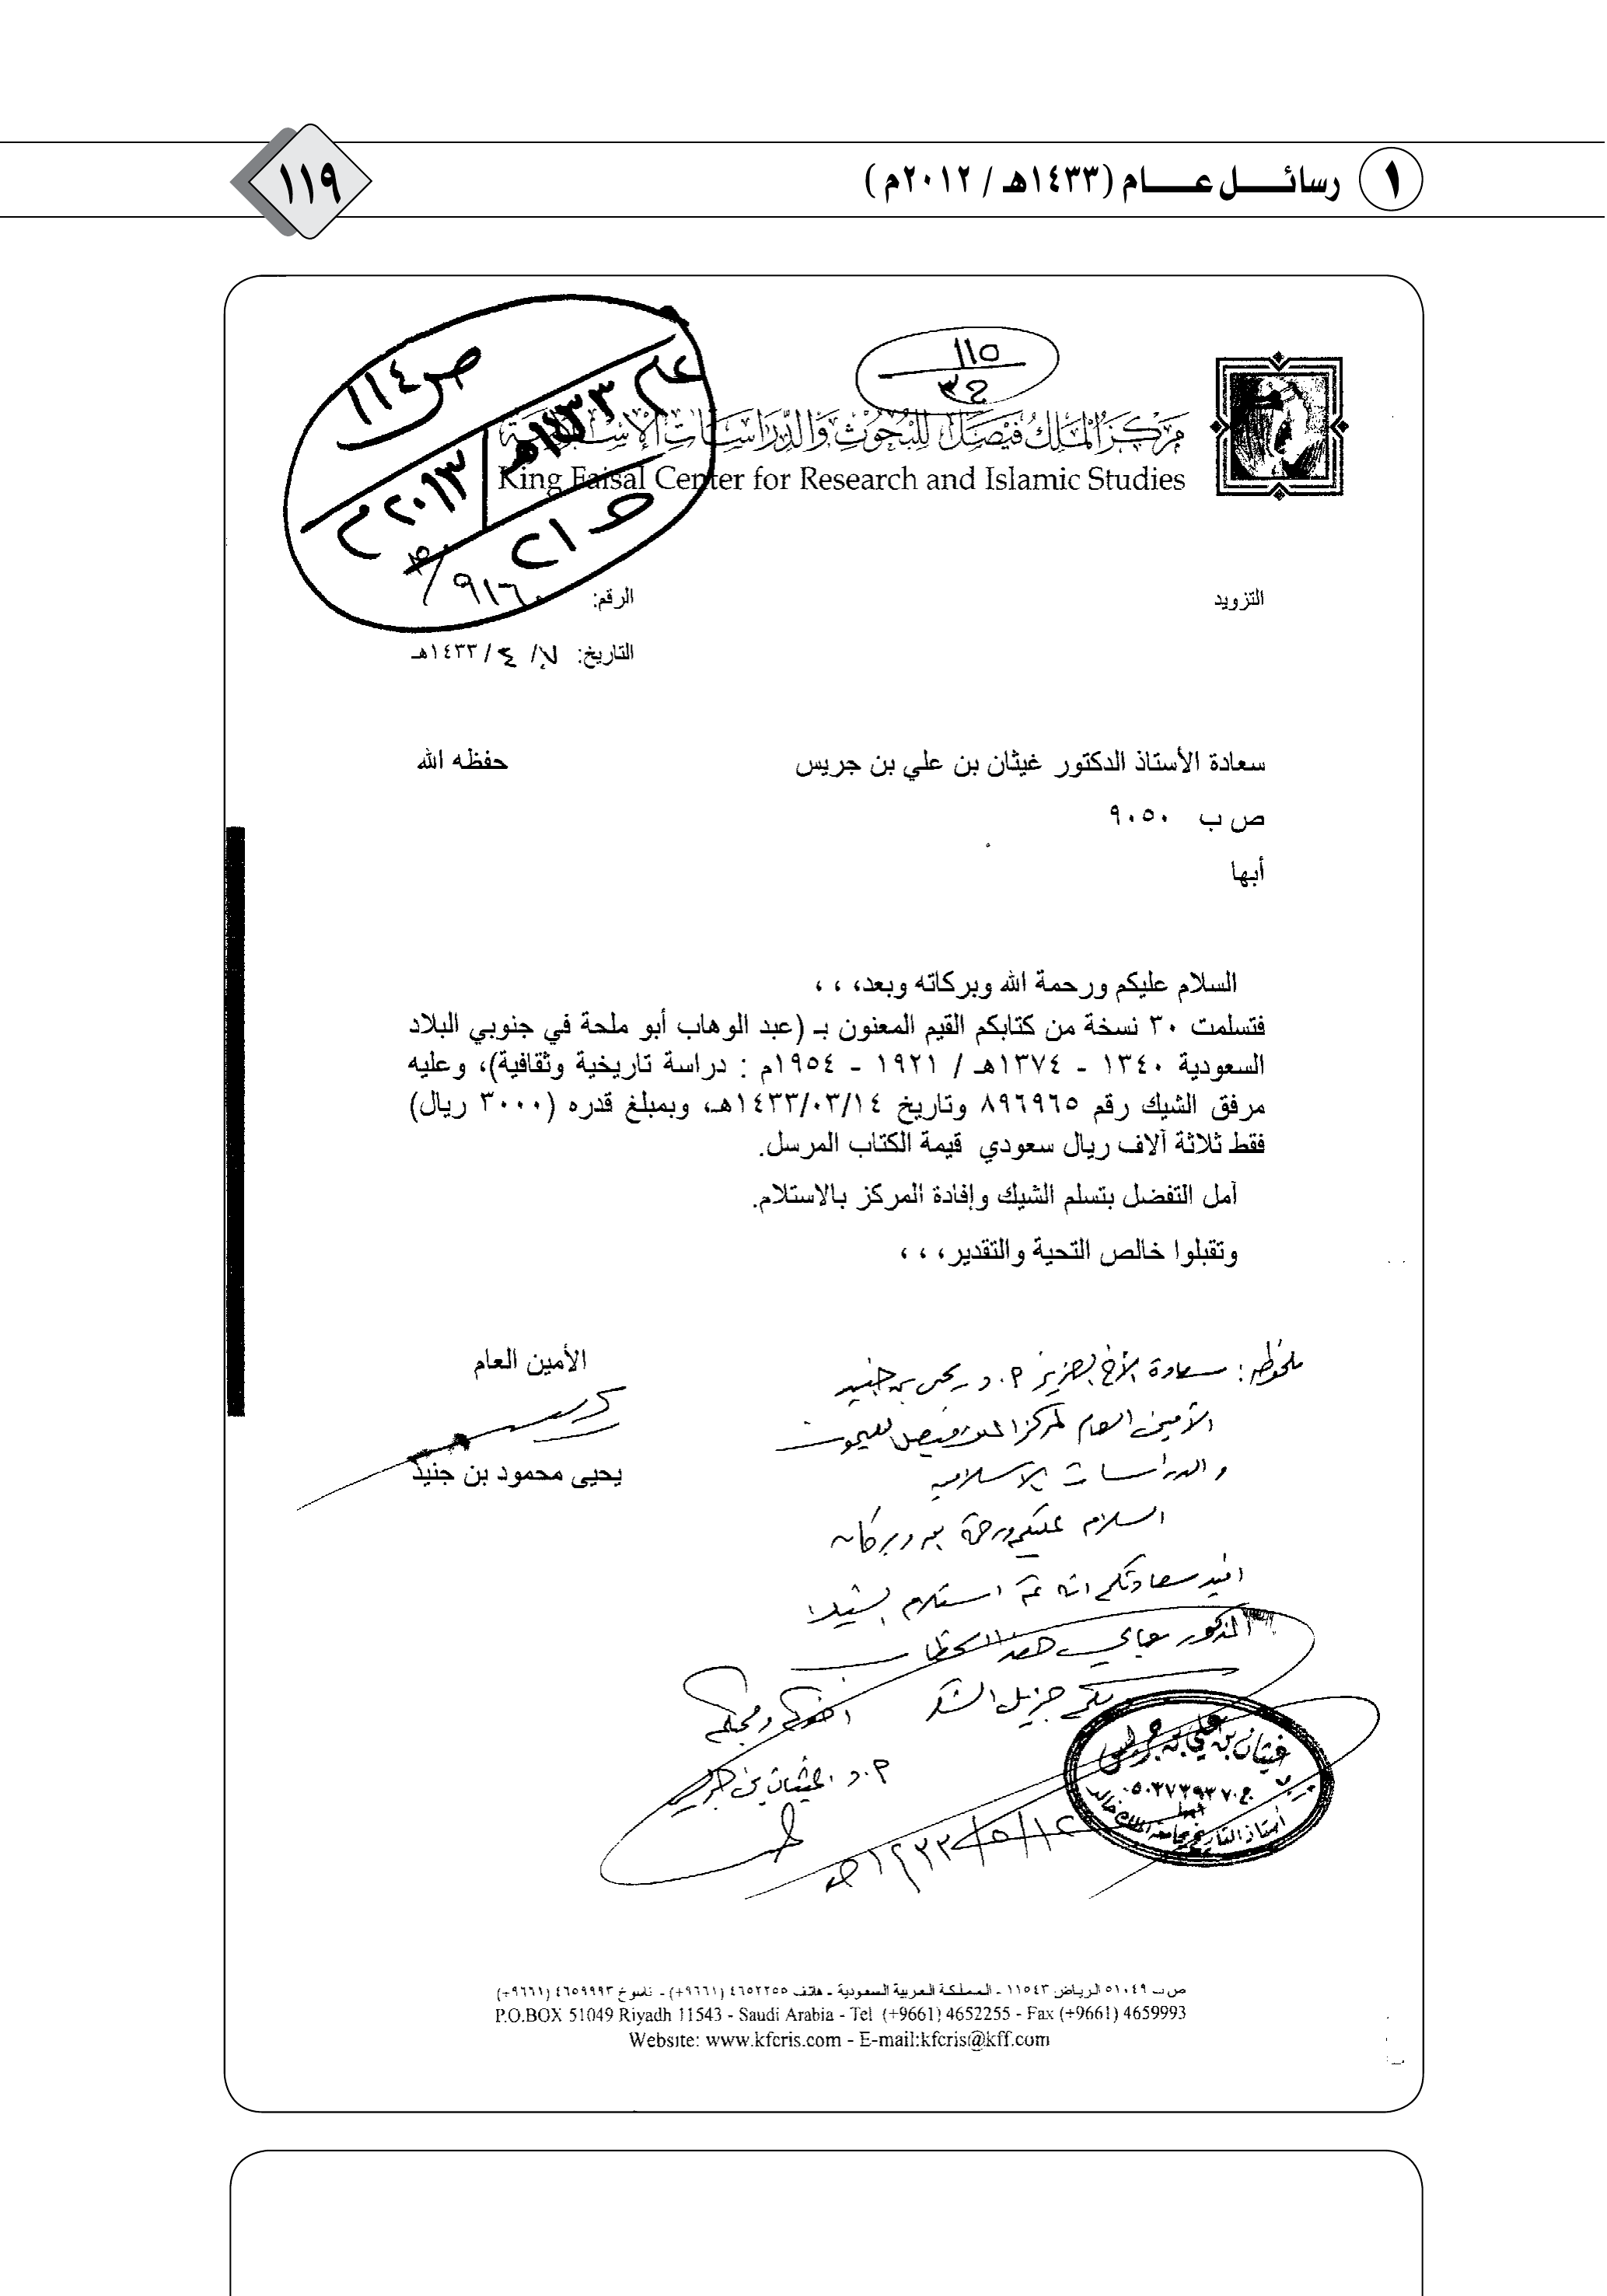 ١ رسائــــل عــــــام (١٤٣٣هـ / ٢٠١٢م)
١١٩
١١٥
ص ١١٤
عام ١٤٣٣هـ
٢٠١٣م
مركز الملك فيصل للبحوث والدراسات الإسلامية
King Faisal Center for Research and Islamic Studies
التزويد
الرقم:
التاريخ: /١٤٣٣هـ
سعادة الأستاذ الدكتور غيثان بن علي بن جريس حفظه الله
ص ب ٩٠٥٠
أبها
السلام عليكم ورحمة الله وبركاته وبعد، ، ،
فتسلمت ٣٠ نسخة من كتابكم القيم المعنون بـ (عبد الوهاب أبو ملحة في جنوبي البلاد
السعودية ١٣٤٠ - ١٣٧٤هـ / ١٩٢١ - ١٩٥٤م : دراسة تاريخية وثقافية)، وعليه
مرفق الشيك رقم ٨٩٦٩٦٥ وتاريخ ١٤٣٣/٠٣/١٤هـ، وبمبلغ قدره (٣٠٠٠ ريال)
فقط ثلاثة آلاف ريال سعودي قيمة الكتاب المرسل.
آمل التفضل بتسلم الشيك وإفادة المركز بالاستلام.
وتقبلوا خالص التحية والتقدير، ، ،
الأمين العام
يحيى محمود بن جنيد
ملحوظة: سعادة الأخ العزيز أ.د يحيى بن جنيد
الأمين العام لمركز الملك فيصل للبحوث
والدراسات الإسلامية
السلام عليكم ورحمة الله وبركاته
أفيد سعادتكم أنه تم استلام الشيك
المذكور
لكم جزيل الشكر أخوكم ومحبكم
أ.د. غيثان بن جريس
غيثان بن علي بن جريس
أبها
أستاذ التاريخ بجامعة الملك خالد
ص ب ٥١٠٤٩ الرياض ١١٥٤٣ - المملكة العربية السعودية - هاتف ٤٦٥٢٢٥٥ (٩٦٦١+) - ناسوخ ٤٦٥٩٩٩٣ (٩٦٦١+)
P.O.BOX 51049 Riyadh 11543 - Saudi Arabia - Tel (+9661) 4652255 - Fax (+9661) 4659993
Website: www.kfcris.com - E-mail:kfcris@kff.com